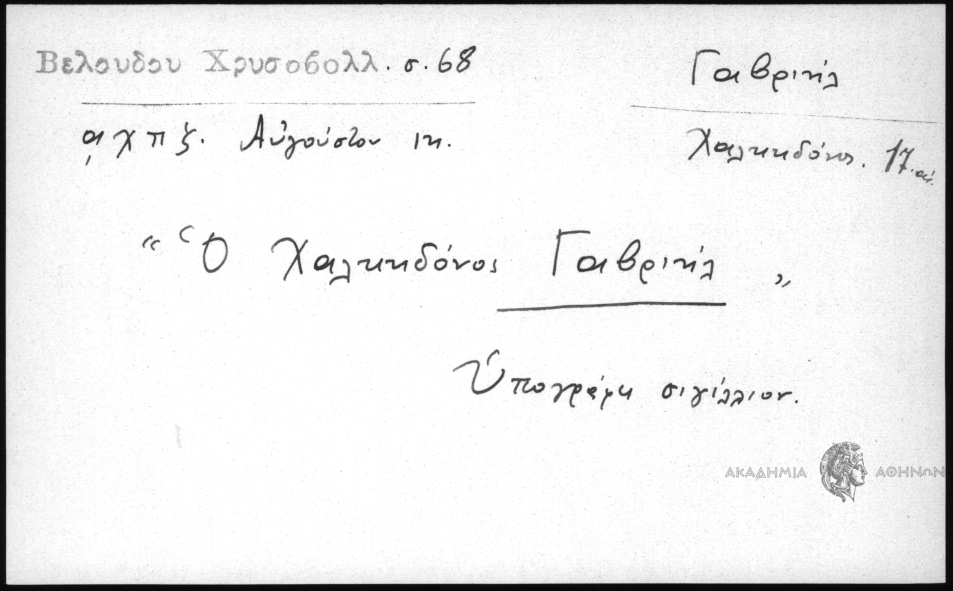 Βελουδου Χρυσοβολλ. σ. 68
Γαβριήλ
͵αχπζ. Αὐγούστου ιη.
Χαλκηδόνος. 17. αἰ.
“ Ὁ Χαλκηδόνος Γαβριήλ „
Ὑπογράφει σιγίλλιον.
ΑΚΑΔΗΜΙΑ ΑΘΗΝΩΝ